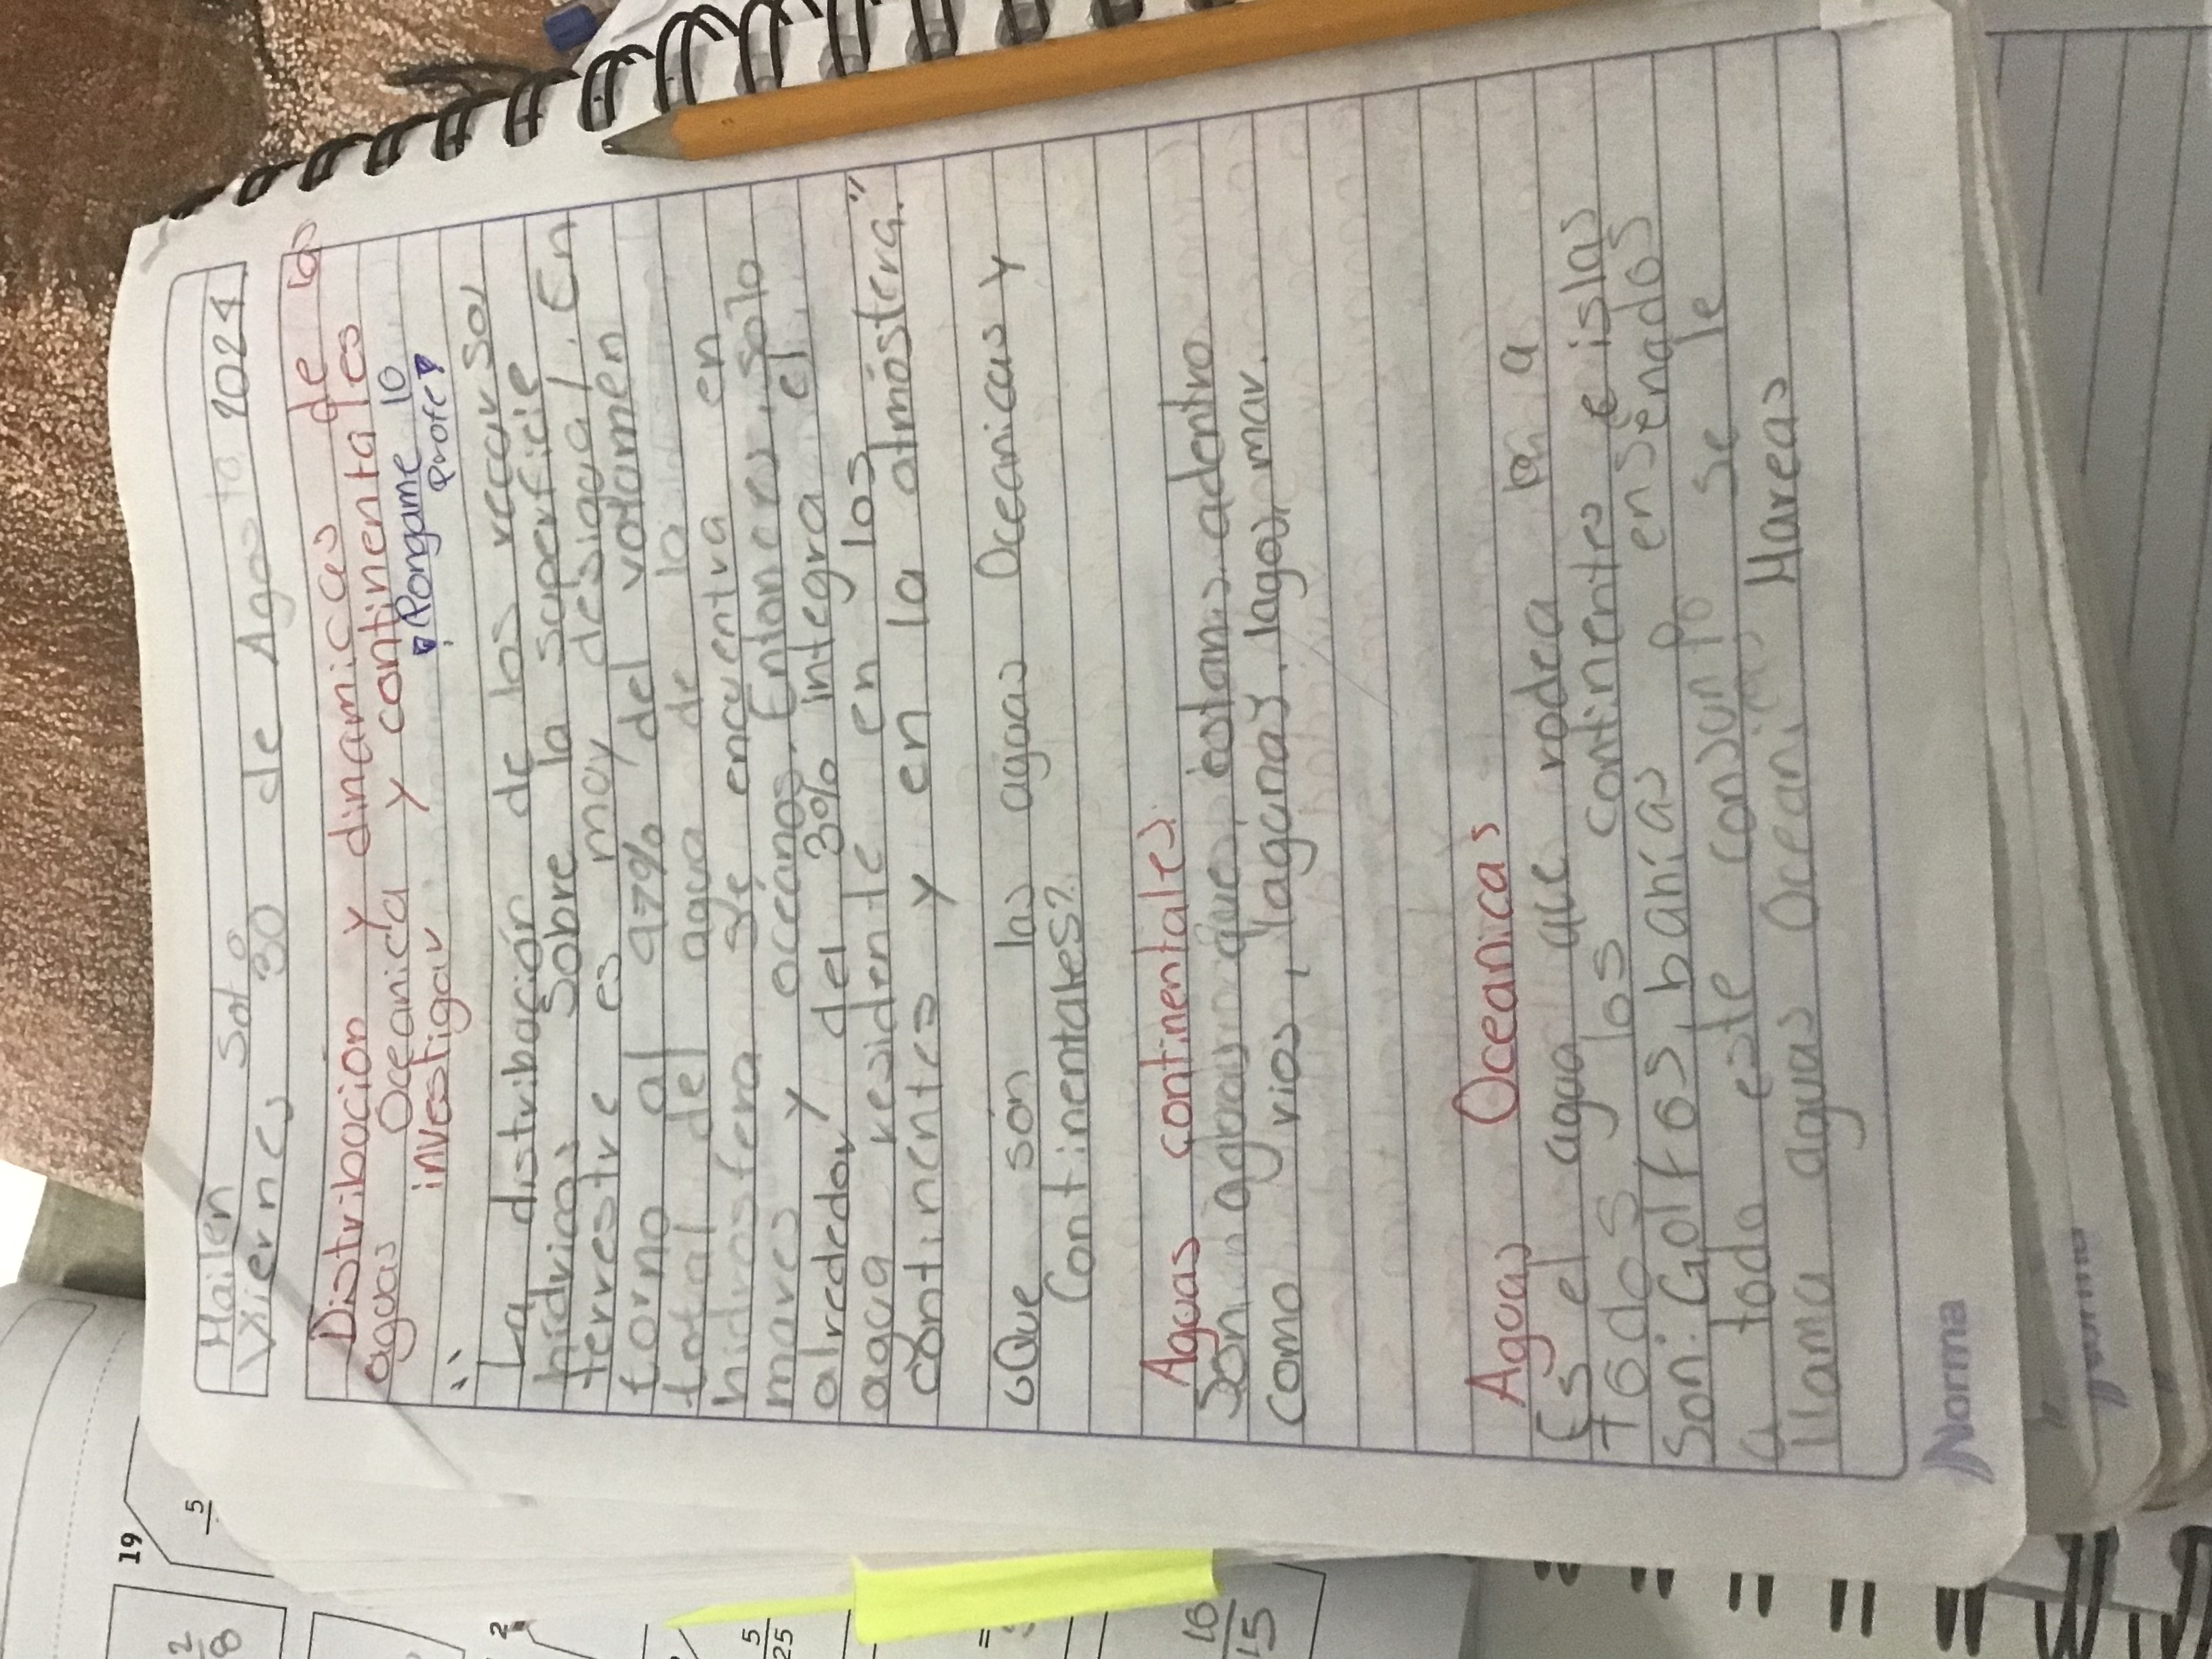 Mailen Soto
Viernes 30 de Agosto 2024
Distribucion y dinamicas de las
aguas Oceanica y continentales
investigar
¡Pongame 10
Profe!
"La distribución de los recursos
hídricos sobre la superficie
terrestre es muy desigual. En
torno al 97% del volumen
total del agua de la
hidrosfera se encuentra en
mares y océanos. Entonces, solo
alrededor del 3% integra el
agua residente en los
continentes y en la atmósfera."
¿Que son las aguas Oceanicas y
Continentales?
Aguas continentales
Son aguas que estan adentro
como rios, lagunas, lagos, mar.
Aguas Oceanicas
Es el agua que rodea a
todos los continentes e islas
Son: Golfos, bahías ensenados
a todo este conjunto se le
llama aguas Oceanicas Mareas
Norma
19
5
2
8
2
5
25
=
16
15